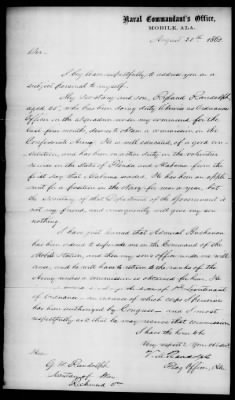 Naval Commandant's Office,
MOBILE, ALA.
August 20th 1862
Sir
I beg leave respectfully to address you on a
subject personal to myself.
My Secretary and son, Ryland Randolph,
aged 26, who has been doing duty as Ordnance
Officer in the Squadron under my command for the
last five months, desires to obtain a commission in the
Confederate Army. He is well educated, of good con-
stitution, and has been on other duty in the volunteer
service in the States of Florida and Alabama from the
first day that Alabama seceded. He has been an appli-
cant for a position in the Navy for near a year, but
the Secretary of that Department of the Government is
not my friend, and consequently will give my son
nothing.
I have just learned that Admiral Buchanan
has been ordered to supersede me in the Command of the
Mobile Station, and then my son's office under me will
cease, and he will have to return to the ranks of the
Army unless a commission is obtained for him.
of 1st Lieutenant
of Ordnance - an increase of which corps I perceive
has been authorized by Congress - and I most
respectfully ask that he may receive that commission.
I have the honor to be
Very respectfully Your Obt Svt
V. M. Randolph
Flag Officer,
Hon
G. W. Randolph
Secretary of War
Richmond Va